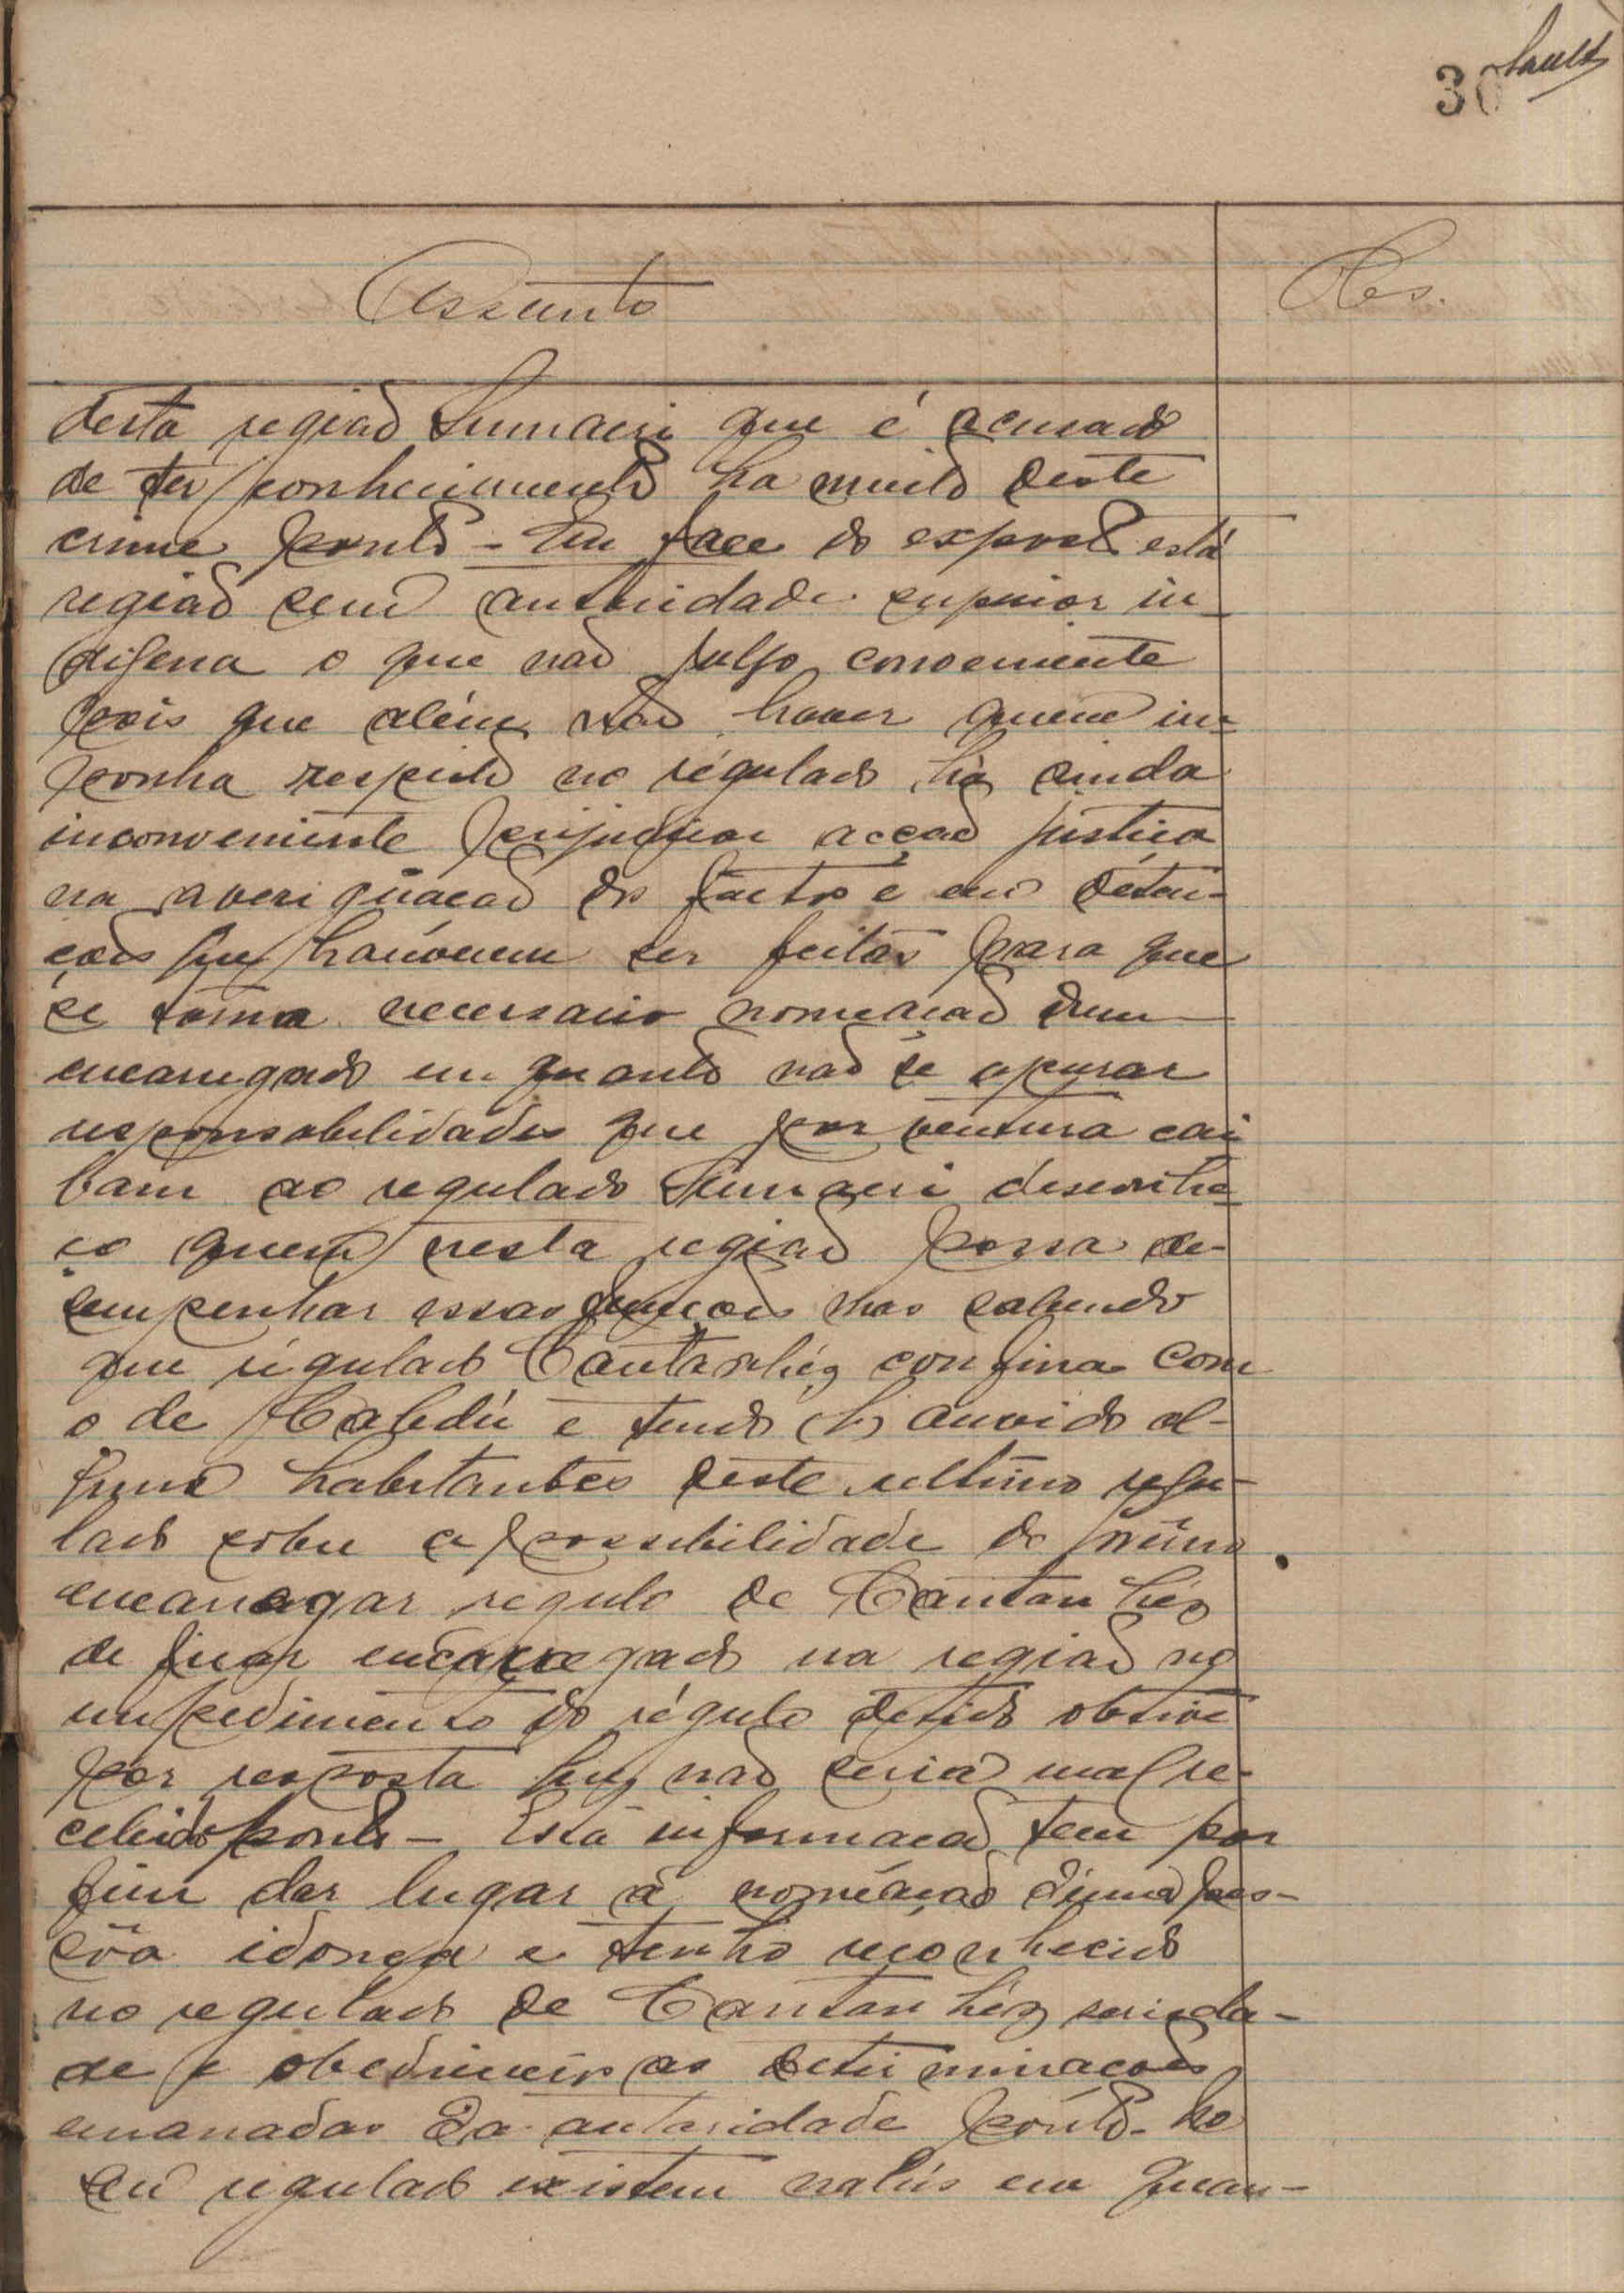 30
Assunto
Obs.
desta região Sumaeri que é acusado
de ter conhecimento ha muito deste
crime ponto - Em face do exposto está
região sem autoridade superior in-
digena o que não julgo conveniente
pois que além não haver quem im-
ponha respeito no régulado há ainda
inconveniente prejudicar acção justiça
na averiguação dos factos e em deten-
ções que houverem ser feitas para que
se torna necessario nomeação dum
encarregado em quanto não se apurar
responsabilidades que por ventura cai
bam ao regulado Sumaeri desconhe-
ço quem nesta região possa de-
sempenhar essas funções mas sabendo
que régulado Cantanhéz confina com
o de Cabedú e tendo ouvido al-
guns habitantes deste ultimo regu-
lado sobre a possibilidade de
encarregar regulo de Cantanhéz
de ficar encarregado na região no
impedimento do régulo detido obtive
por resposta que não seria mal re-
cebido ponto - Esta informação tem por
fim dar lugar á nomeação duma pes-
sôa idonea e tenho reconhecido
no regulado de Cantanhéz serieda-
de e obediencia as determinações
emanadas da autoridade ponto - No
seu regulado existem nalús em quan-